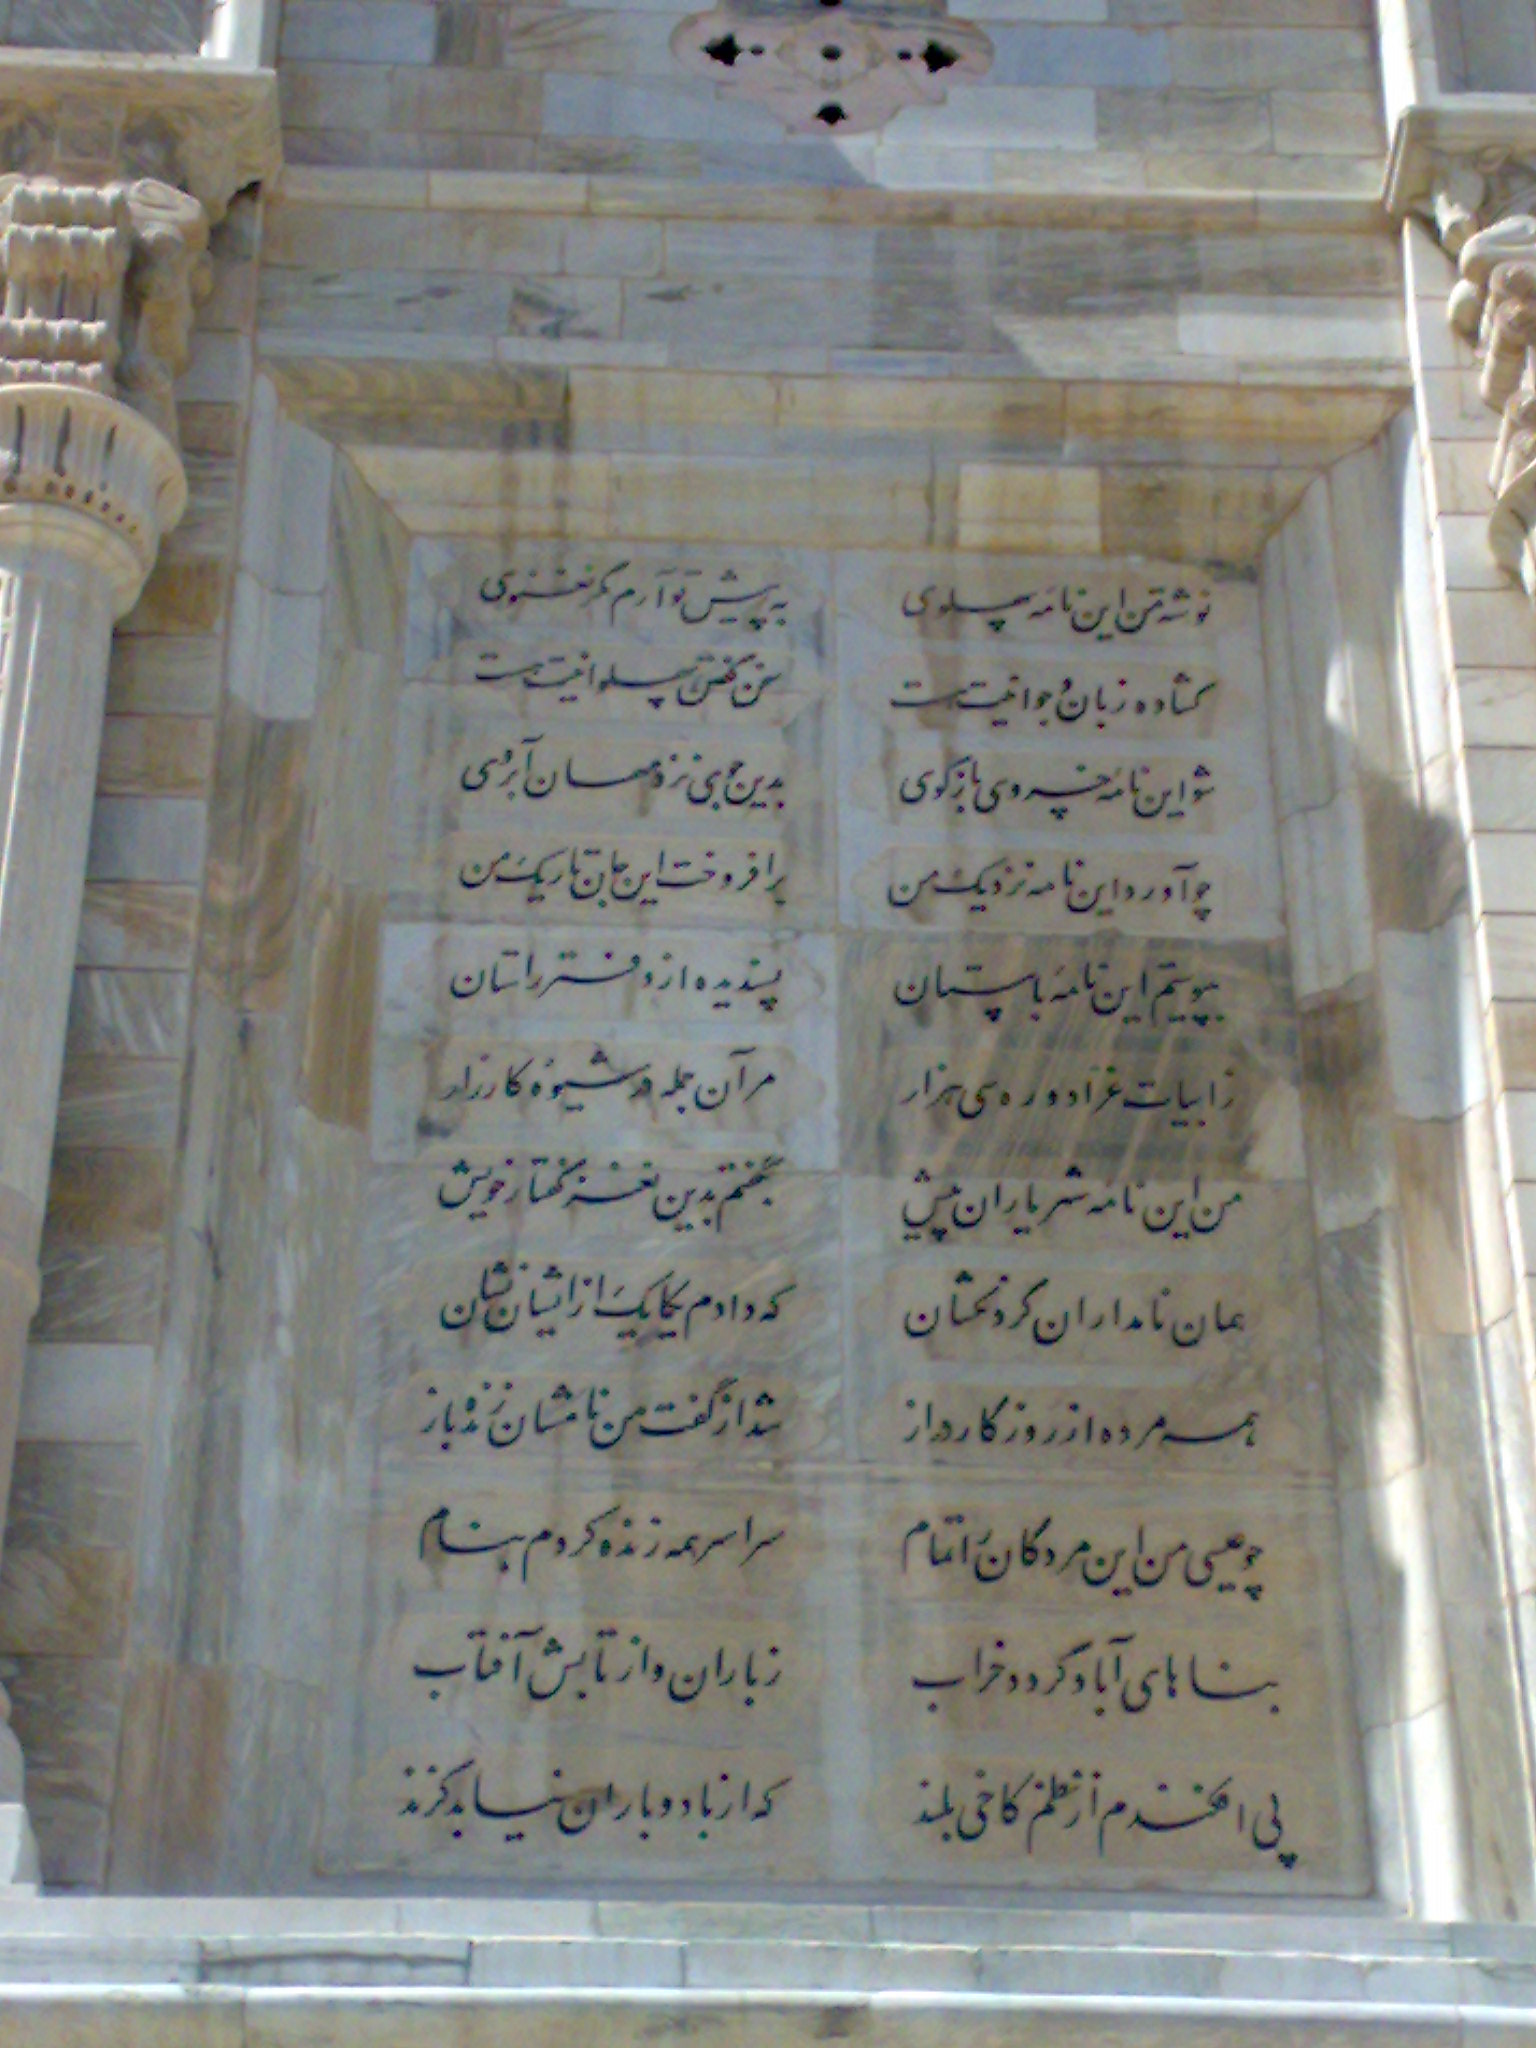 نوشته من این نامه پهلوی به پیش تو آرم مگر نغنوی
گشاده زبان و جوانیت هست سخن گفتن پهلوانیت هست
شو این نامه خسروی بازگوی بدین جوی نزد مهان آبروی
چو آورد این نامه نزدیک من برافروخت این جان تاریک من
بپیوستم این نامهٔ باستان پسندیده از دفتر راستان
ز ابیات غرا دو ره سی هزار مر آن جمله در شیوهٔ کارزار
من این نامه شهریاران پیش بگفتم بدین نغز گفتار خویش
همان نامداران گردنکشان که دادم یکایک از ایشان نشان
همه مرده از روزگار دراز شد از گفت من نامشان زنده باز
چو عیسی من این مردگان را تمام سراسر همه زنده کردم بنام
بناهای آباد گردد خراب ز باران و از تابش آفتاب
پی افکندم از نظم کاخی بلند که از باد و باران نیابد گزند